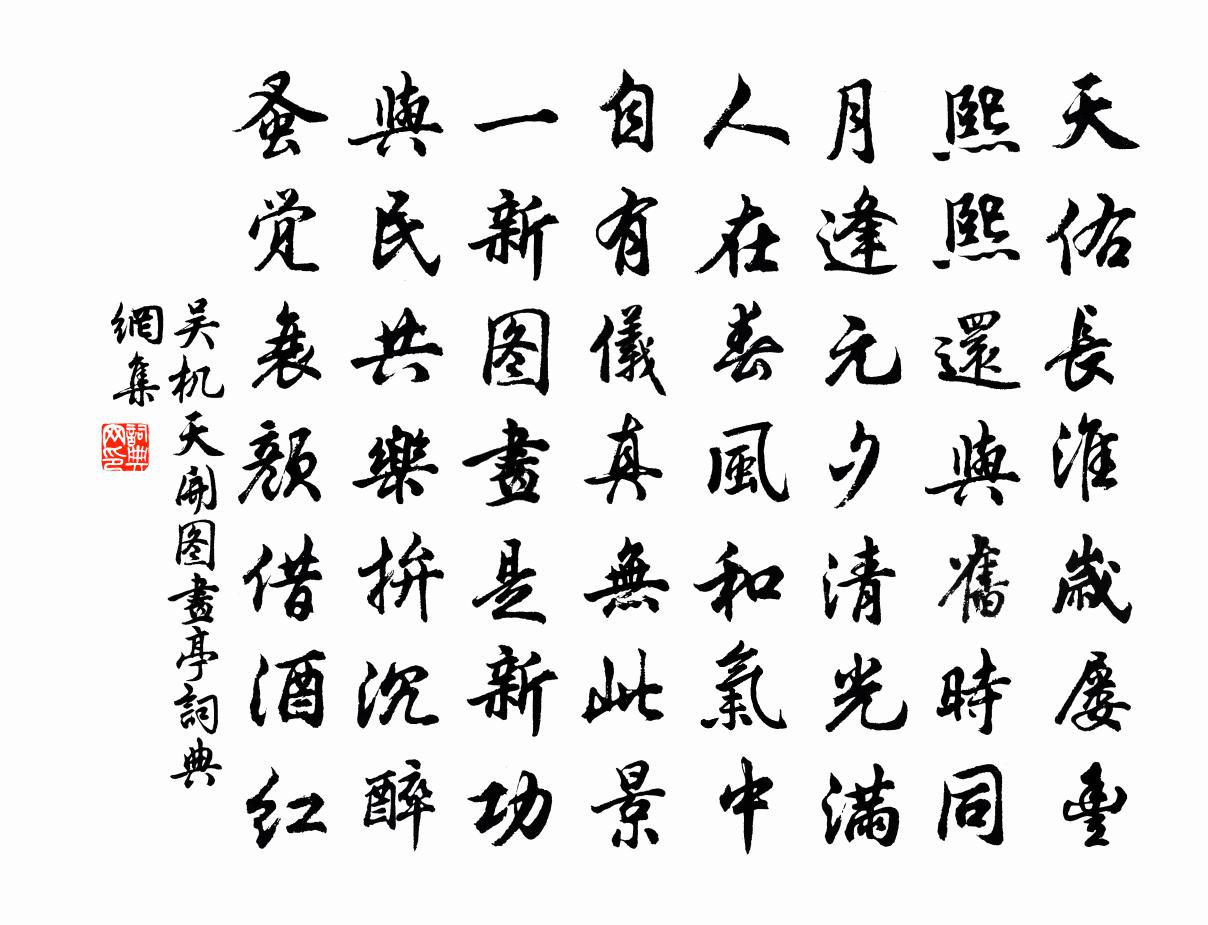 天佑長淮歲屡豐
熙熙還與舊時同
月逢元夕清光滿
人在春風和氣中
自有儀真無此景
一新图畫是新功
與民共樂拚沉醉
蚤觉衰顔借酒红
吴机天開图畫亭詞典
網集
詞典
网印